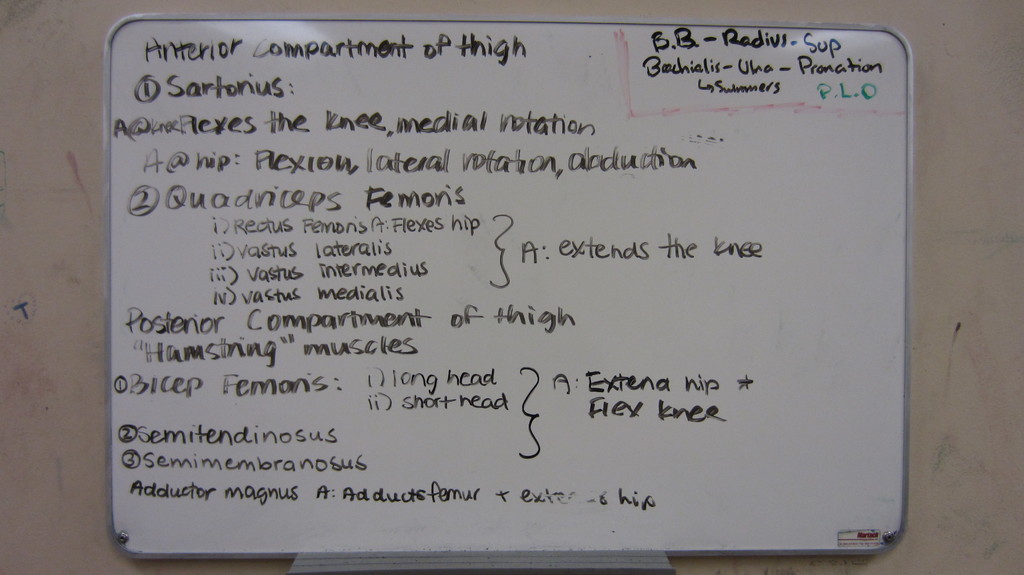 Anterior compartment of thigh
① Sartorius:
A@knee Flexes the knee, medial rotation
A@hip: Flexion, lateral rotation, abduction
② Quadriceps Femoris
i) Rectus Femoris A: Flexes hip
ii) vastus lateralis
iii) vastus intermedius
iv) vastus medialis
A: extends the knee
Posterior Compartment of thigh
"Hamstring" muscles
① Bicep Femoris: i) long head
ii) short head
A: Extend hip +
Flex knee
② Semitendinosus
③ Semimembranosus
Adductor magnus A: Adducts femur + extends hip
B.B. - Radius - Sup
Brachialis - Ulna - Pronation
↳ Summers
P.L.O